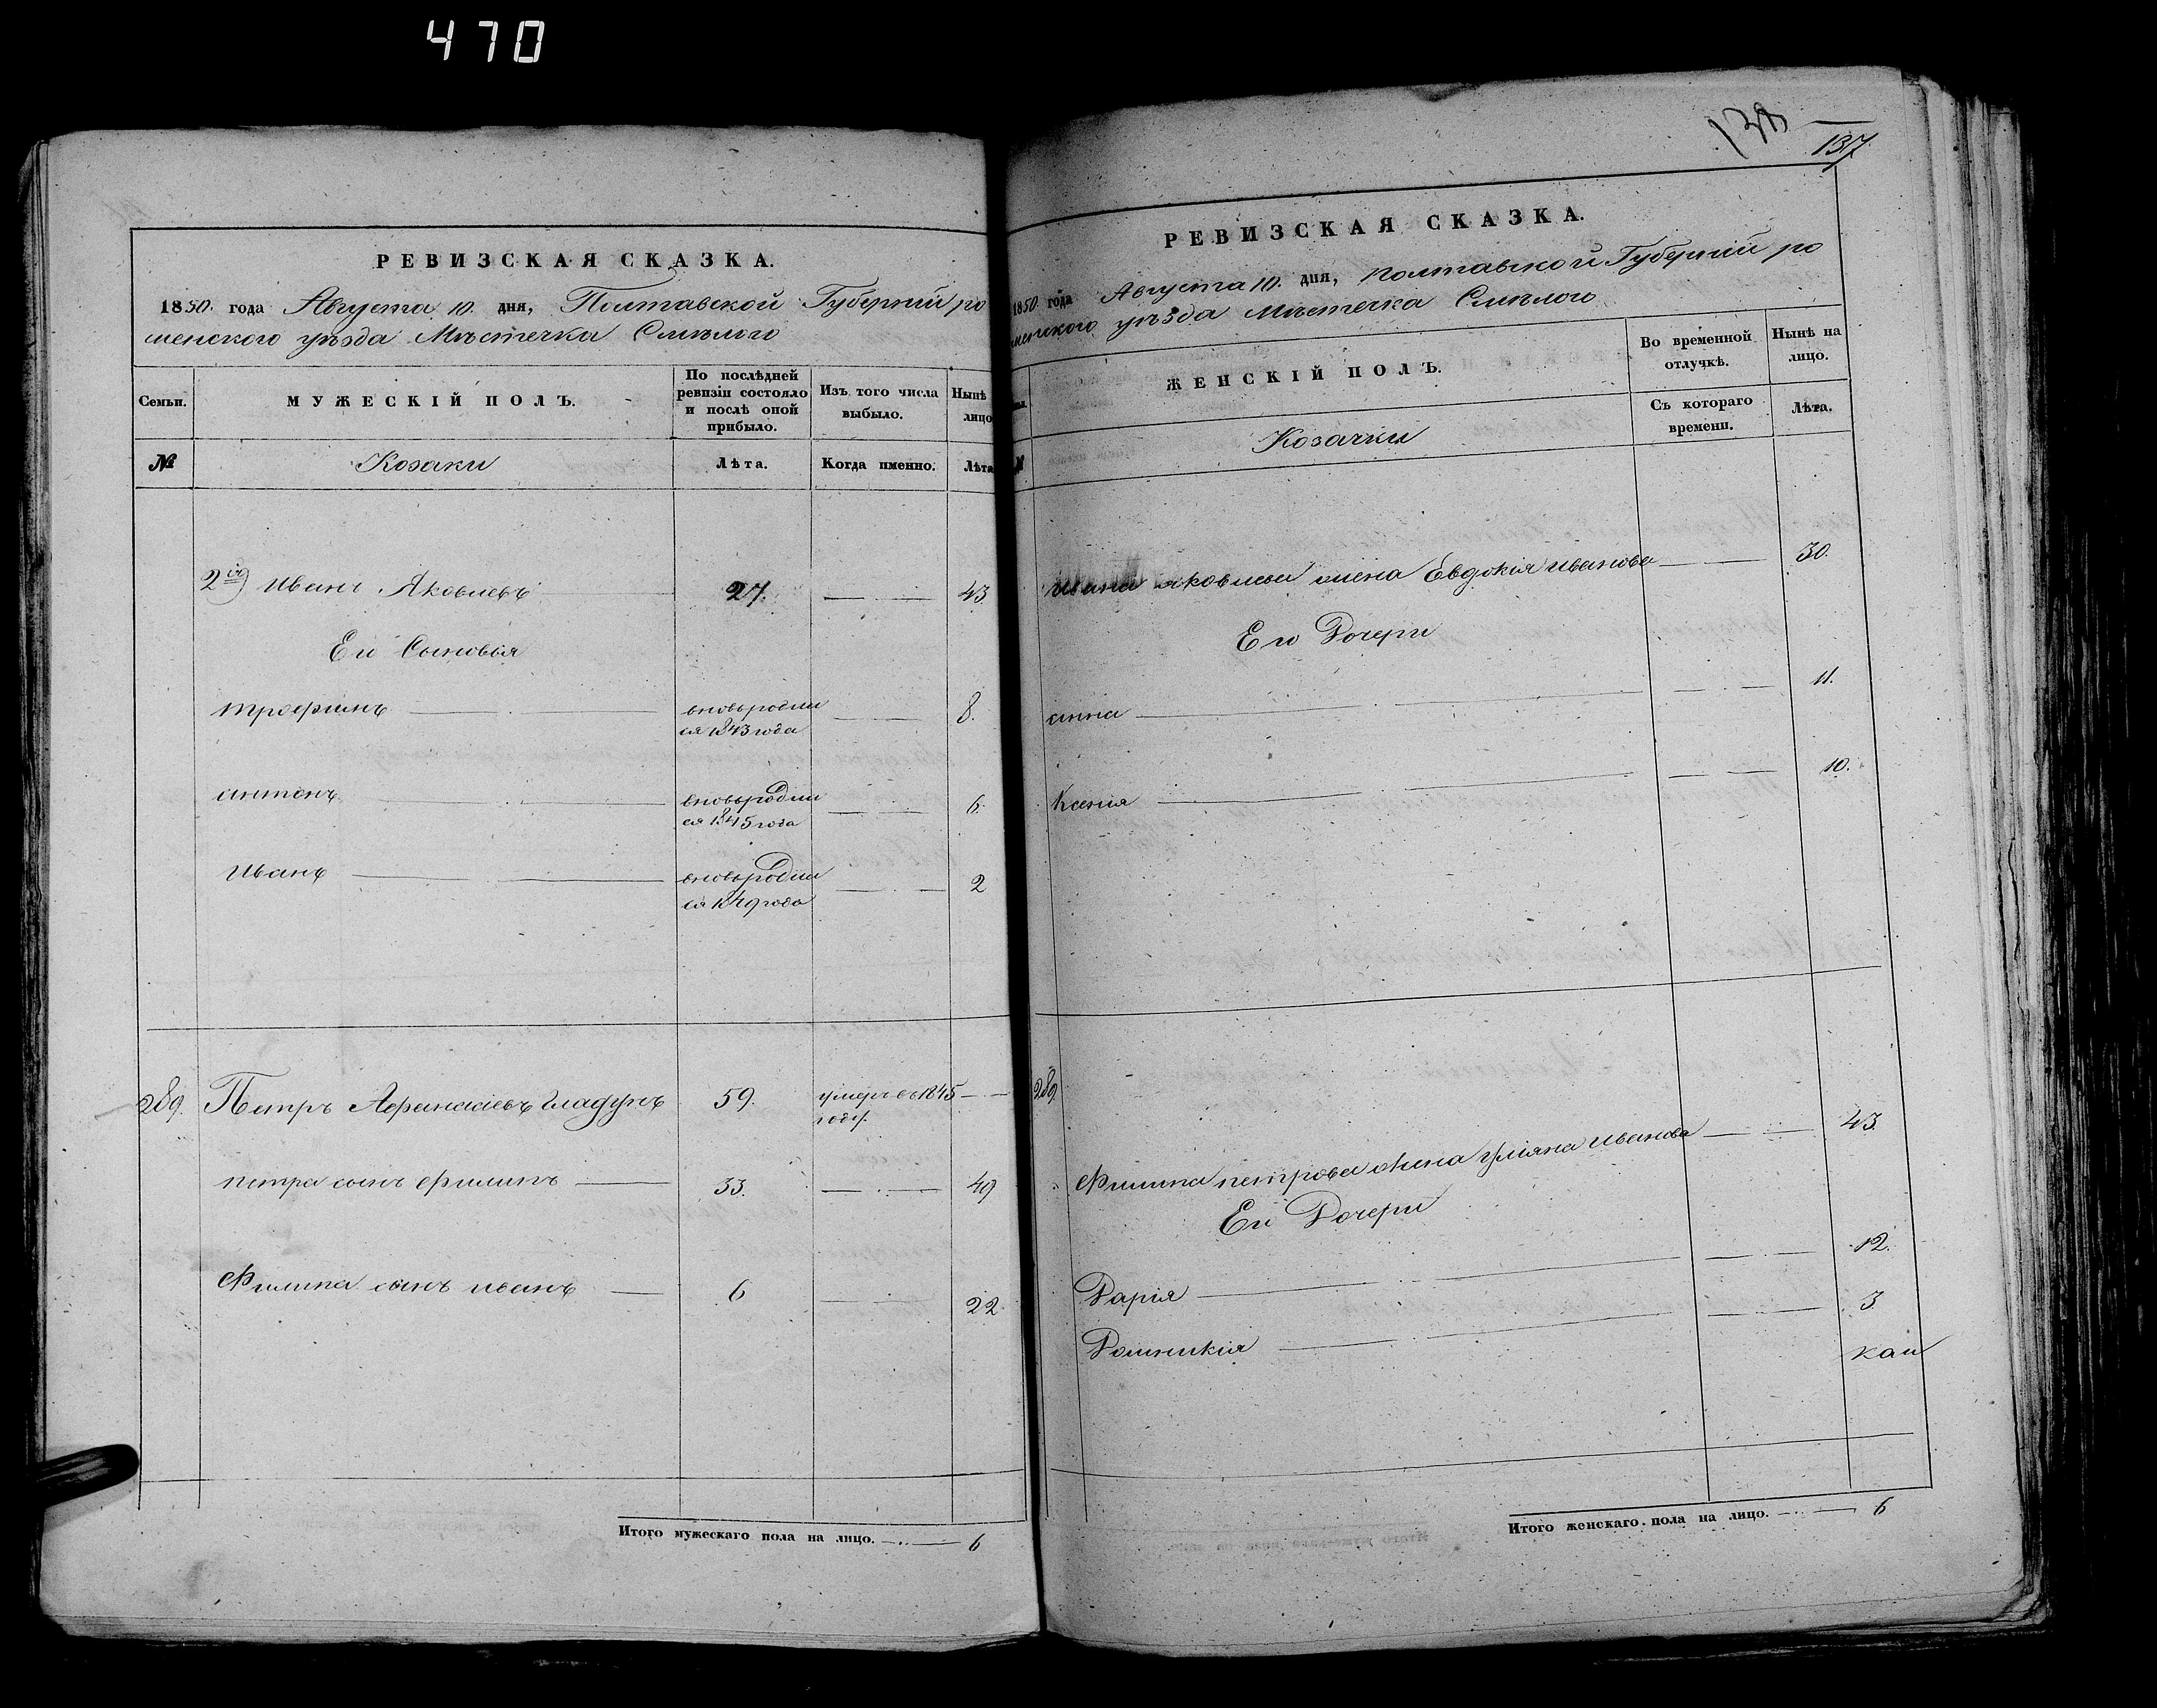 470
РЕВИЗСКАЯ СКАЗКА.
1850. года Августа 10. дня, Полтавской Губерніи ро
менского уѣзда Мѣстечка Смѣлого
Семьи.
МУЖЕСКІЙ ПОЛЪ.
По послѣдней
ревизіи состояло
и послѣ оной
прибыло.
Изъ того числа
выбыло.
Нынѣ
лицо
№
Козаки
Лѣта.
Когда именно.
Лѣта
2й Иванъ Яковлевъ 27. 43.
Его Сыновья
трофимъ вновь родил
ся 1843 года 8.
антонъ вновь родил
ся 1845 года 6.
Иванъ вновь родил
ся 1849 года 2
289. Петръ Афанасіевъ Гладунъ 59. умеръ въ 1845
году.
петра сынъ филипъ 33. 49
Филипа сынъ иванъ 6 22.
Итого мужескаго пола на лицо. 6
138
137
РЕВИЗСКАЯ СКАЗКА.
1850. года Августа 10. дня, полтавской Губерніи ро
менского уѣзда Мѣстечка Смѣлого
ЖЕНСКІЙ ПОЛЪ.
Во временной
отлучкѣ.
Нынѣ на
лицо.
№
Козачки
Съ котораго
времени.
Лѣта.
Ивана яковлева жена Евдокія иванова 30.
Его Дочери
анна 11.
Ксенія 10.
289.
Филипа петрова жена уліяна иванова 43.
Его Дочери
Дарія 12.
Домникія 3
Итого женскаго пола на лицо. 6